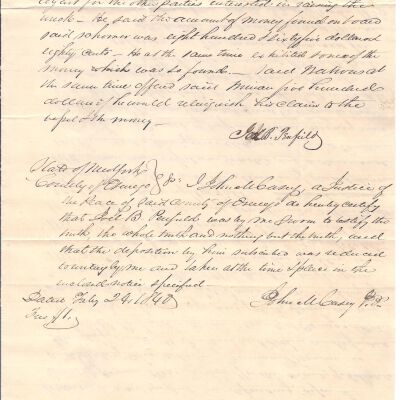 for the other parties interested in saving the
He said the amount of money found on board
said schooner was eight hundred & sixty five dollars &
eighty cents – He at the same time exhibited some of the
money which was so found – said at
the same time offered said five hundred
dollars if he would relinquish his claim to the
vessel & the money –
Joel B. Penfield
State of
County of Oswego } SS I John M Casey, a Justice of
the Peace of said County of Oswego do hereby certify
that Joel B. Penfield was by me sworn to testify the
truth the whole truth and nothing but the truth, and
that the deposition by him subscribed was reduced
to writing by me and taken at the time & place in the
enclosed notice specified
Dated Feby 24 1840
John M Casey J. P.